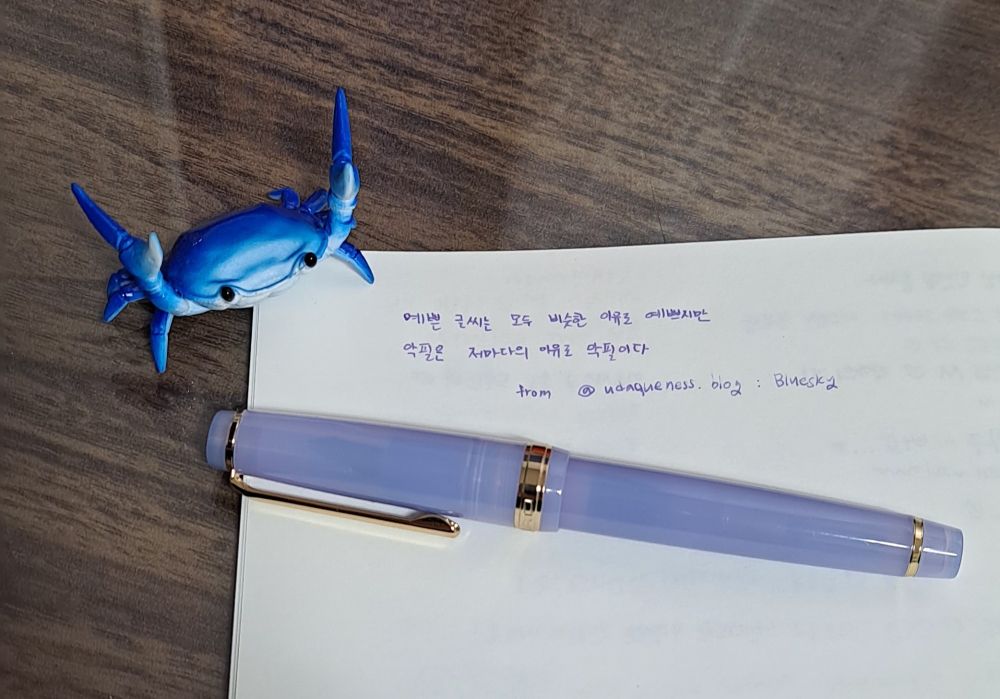 예쁜 글씨는 모두 비슷한 이유로 예쁘지만
악필은 저마다의 이유로 악필이다
from @udaqueness.blog : Bluesky